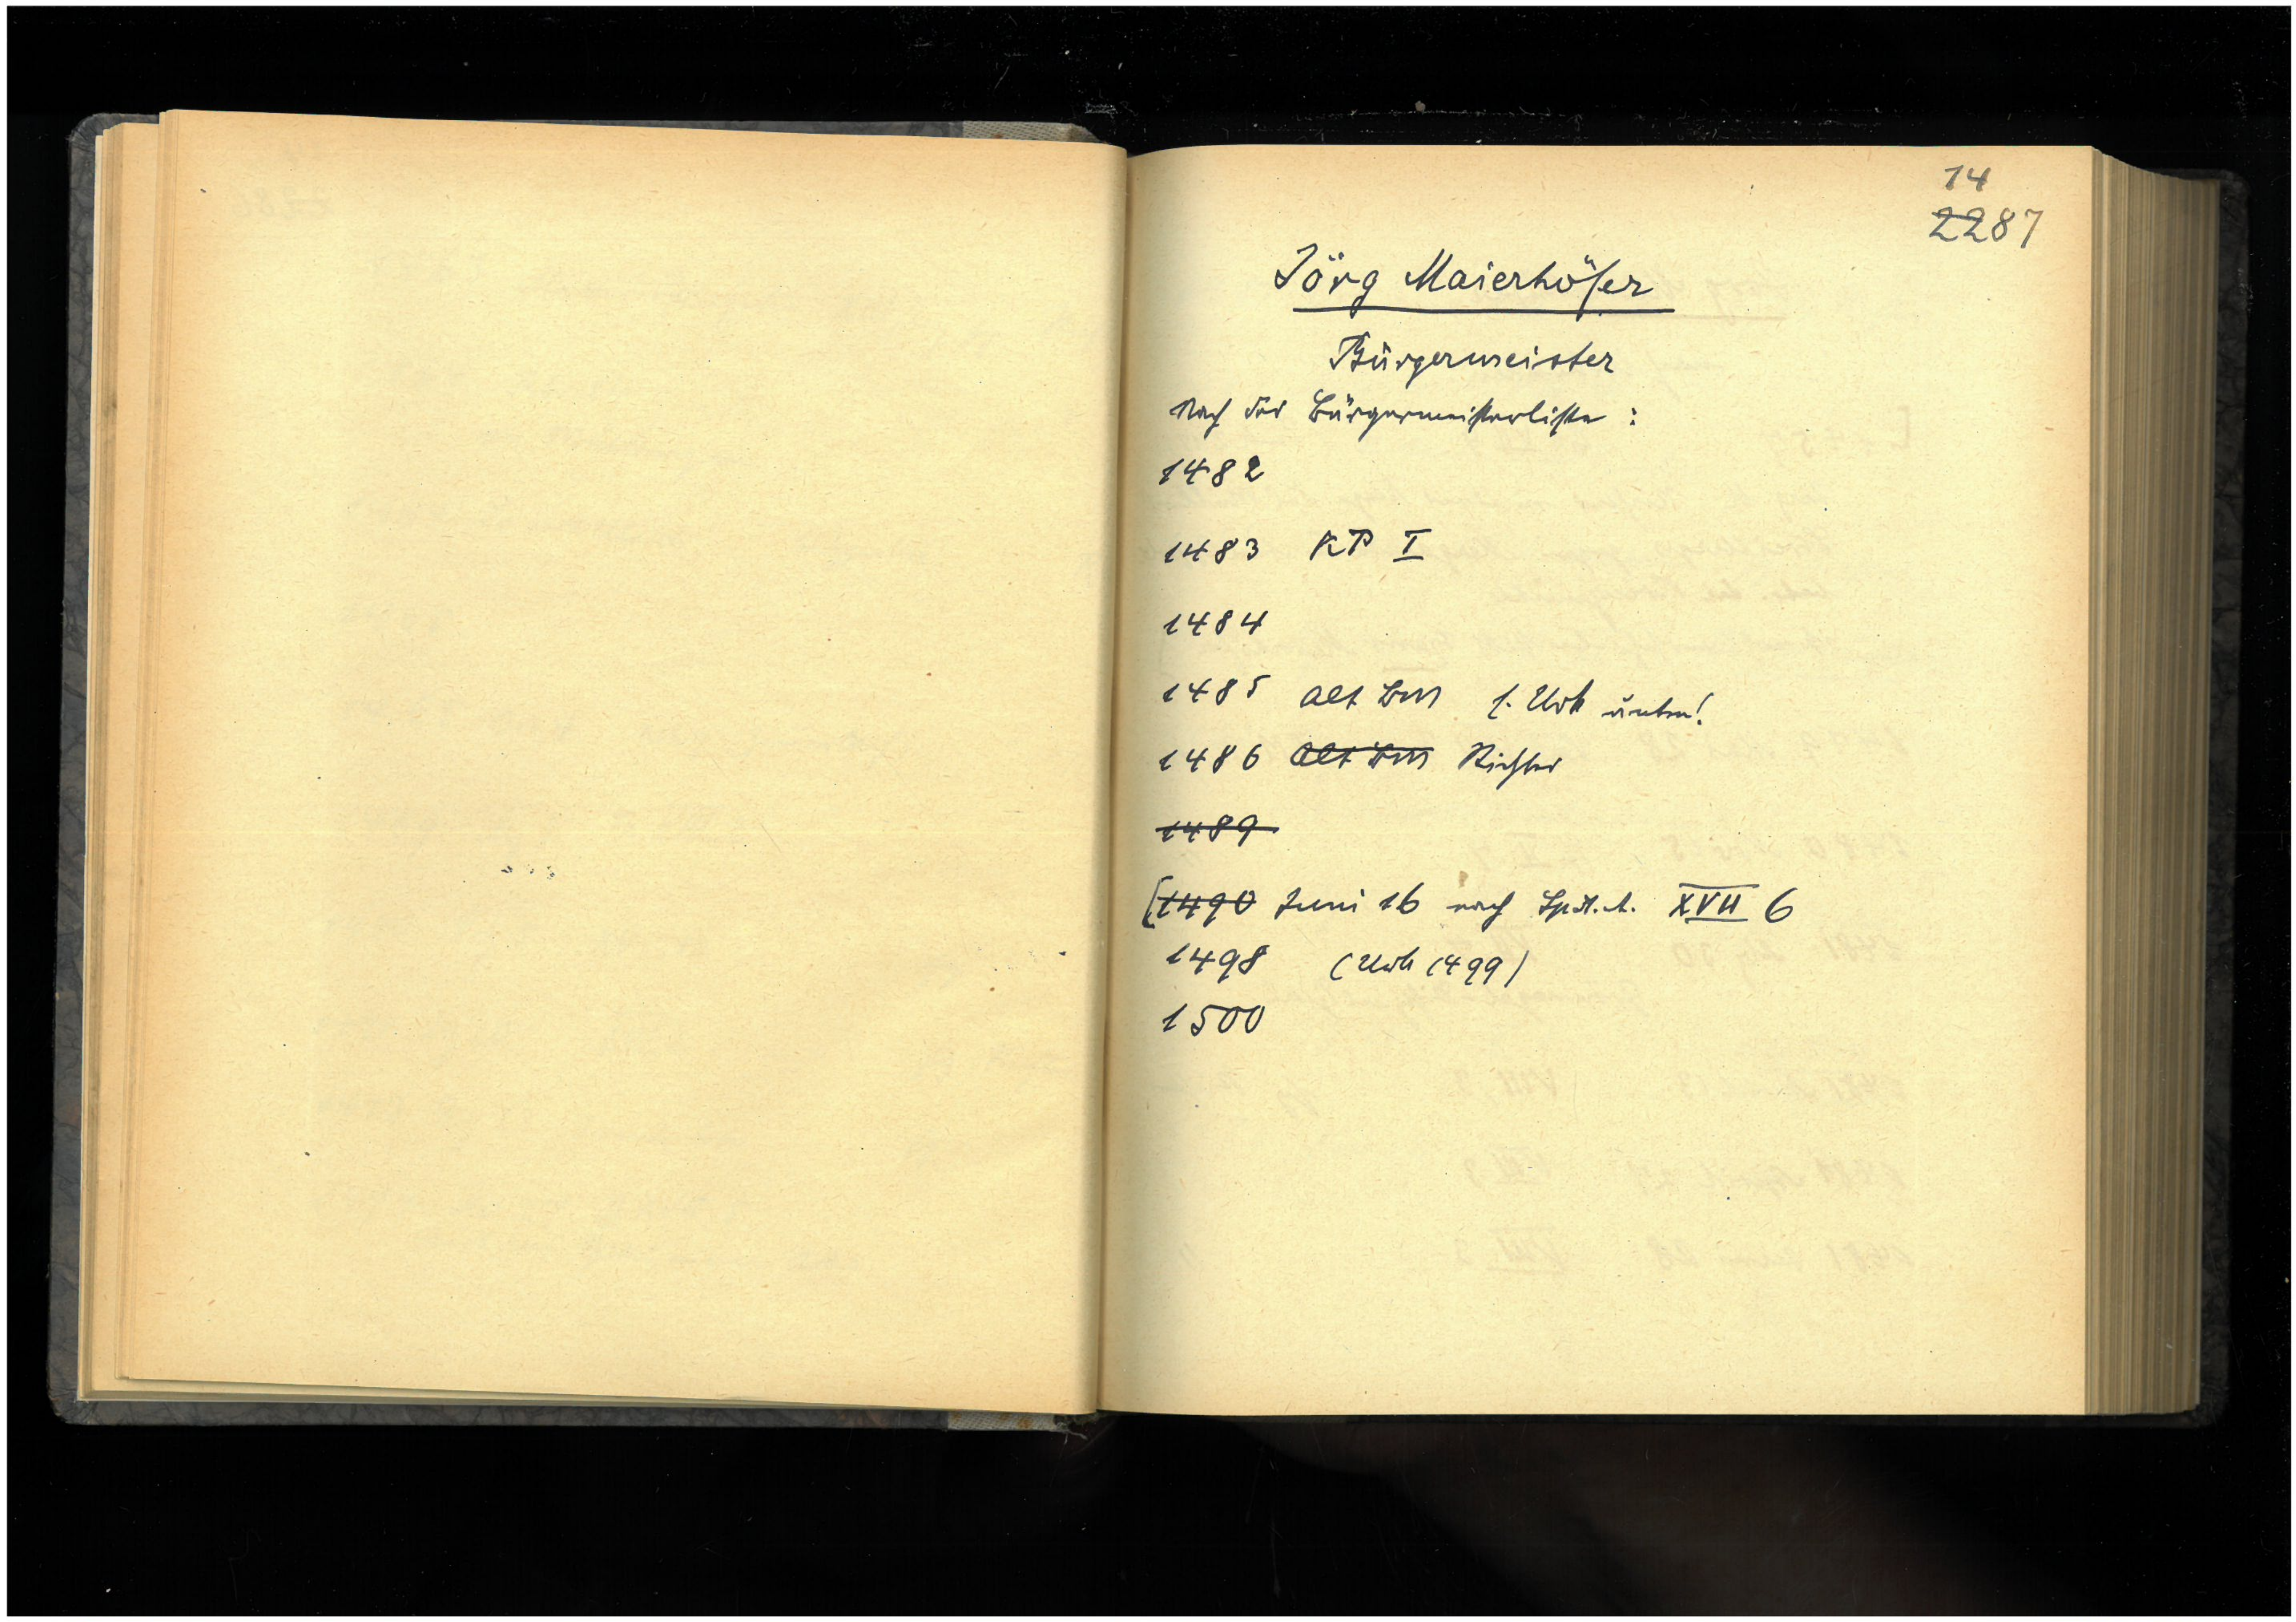 14
2287
Jörg Maierhöfer
Bürgermeister
Nach der Bürgermeisterliste :
1482
1483 KP I
1484
1485 alt BM s. Urk unten!
1486 alt BM Richter
1489
[1490 Juni 16 nach XVII 6
1498 (Urk 1499)
1500